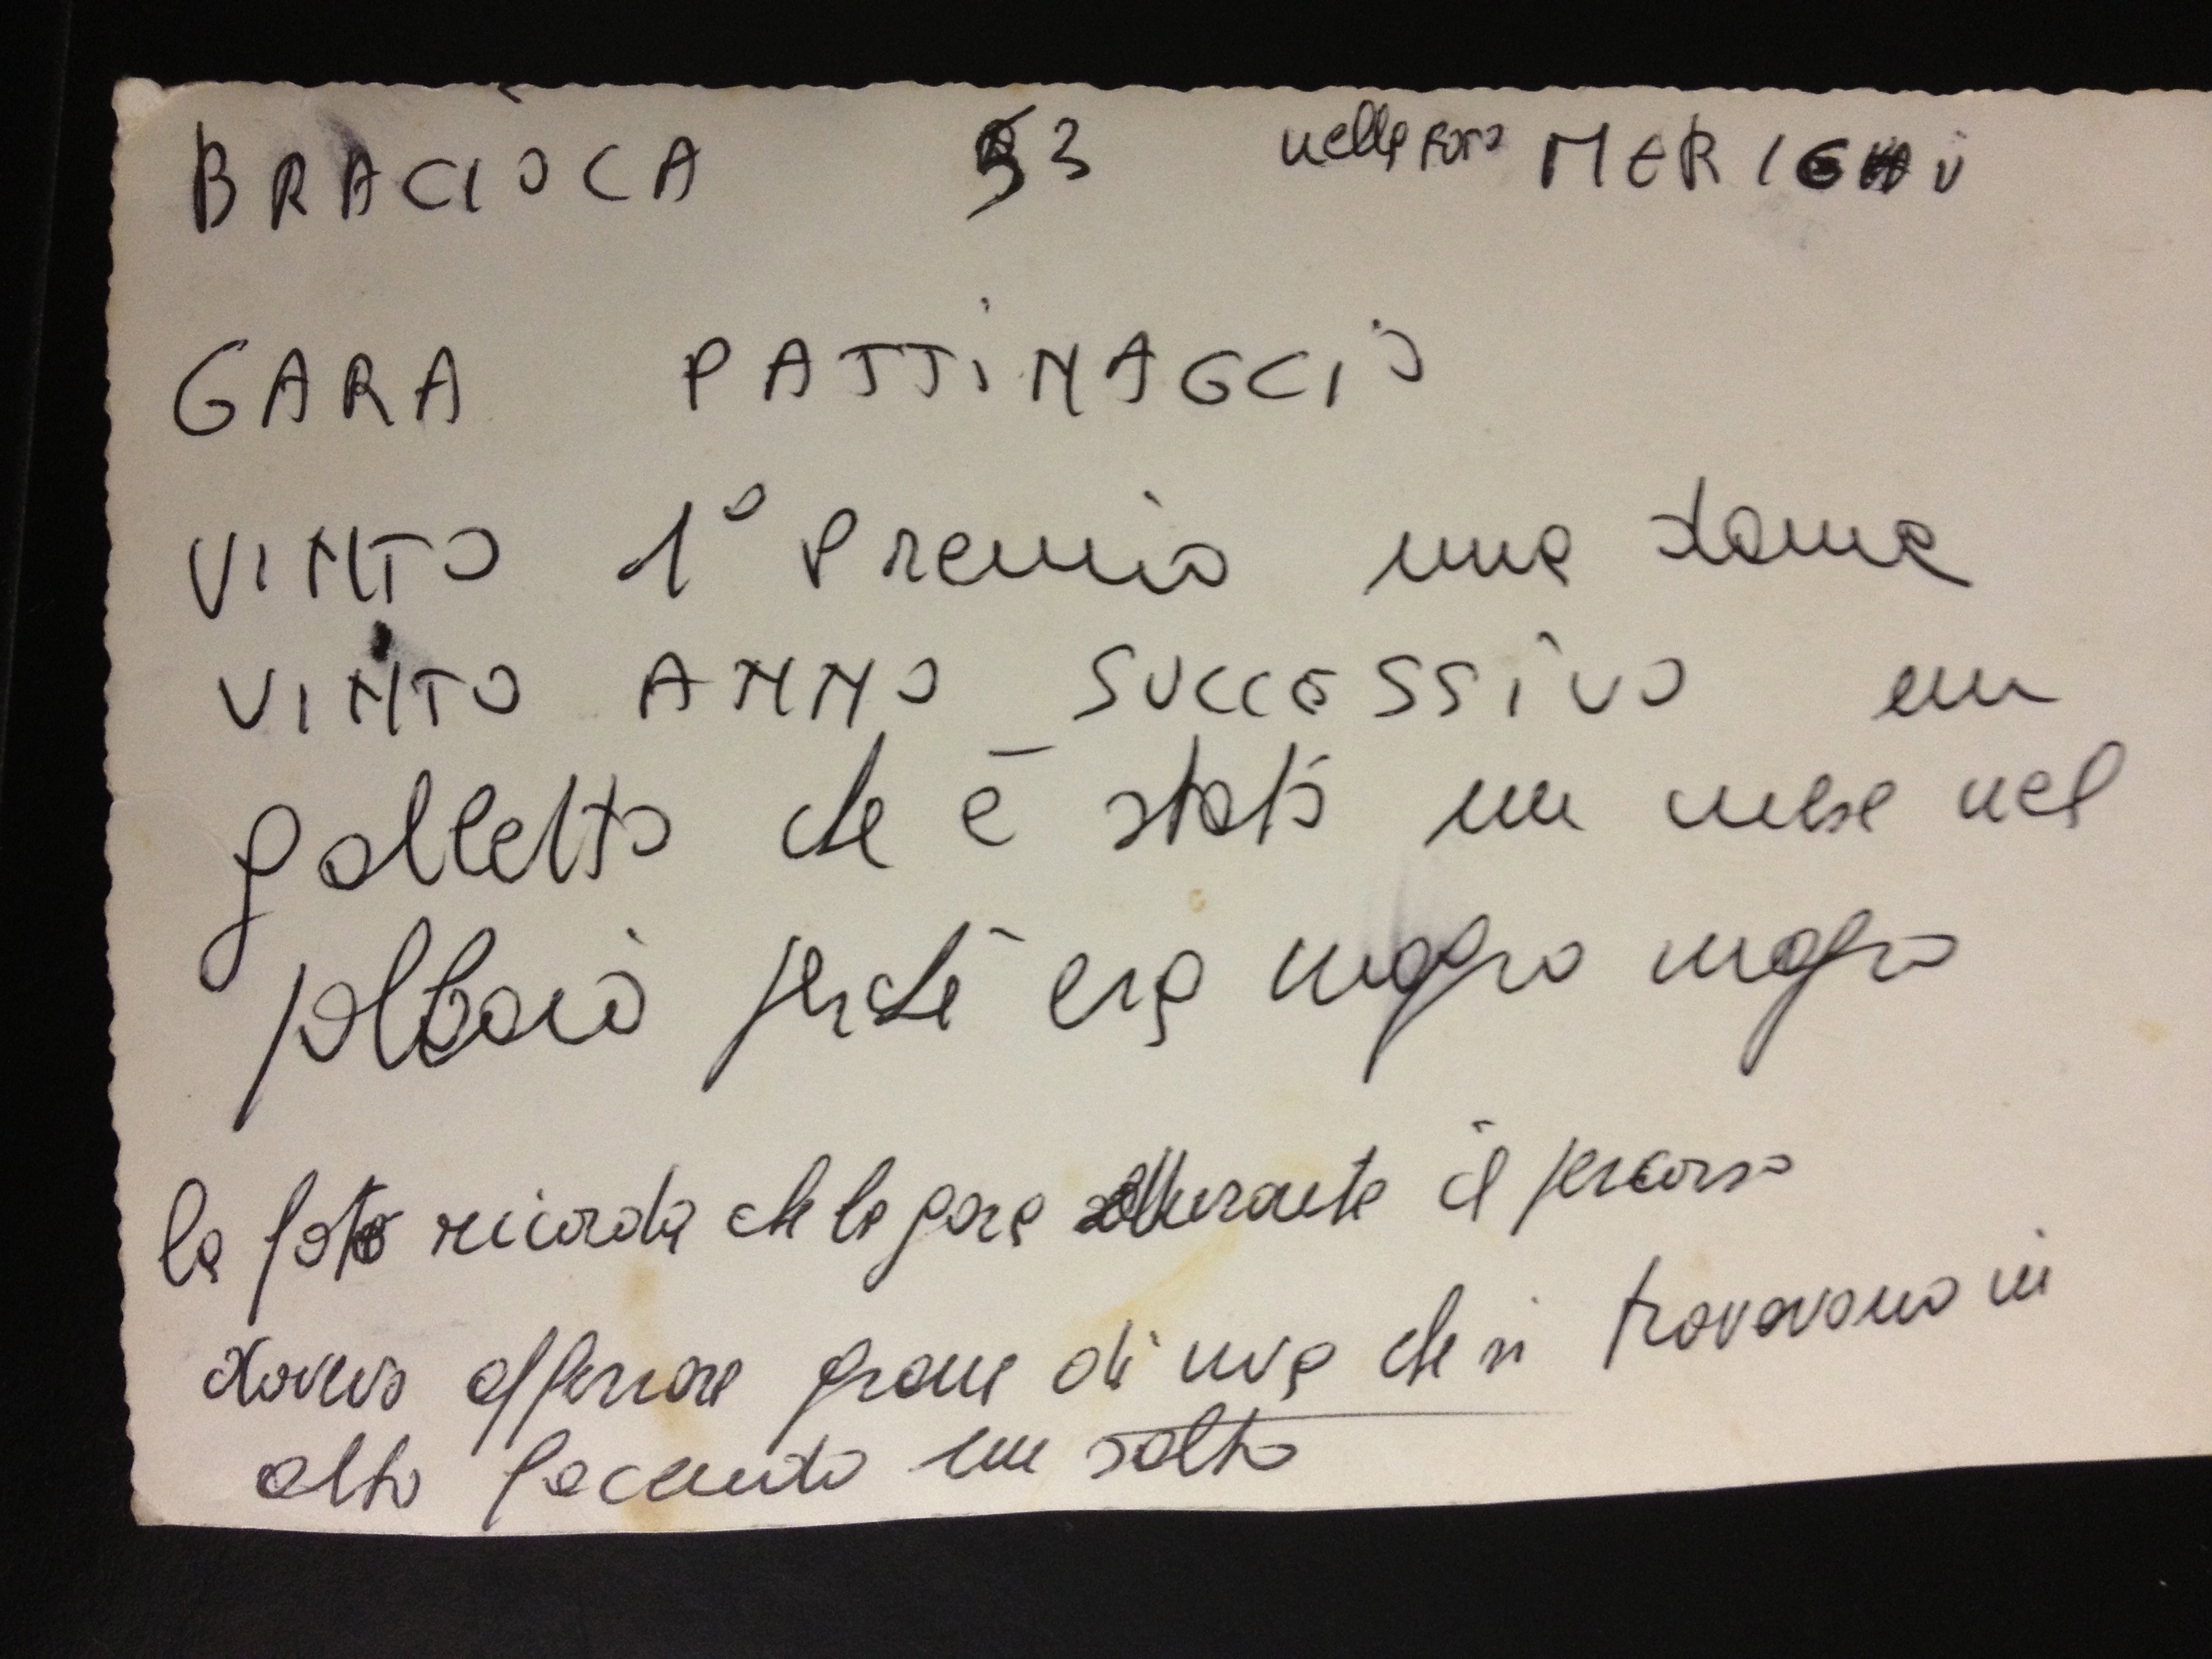 BRACIOCA 53 nella foto MERIGHI
GARA PATTINAGGIO
VINTO 1° Premio una dama
VINTO ANNO SUCCESSIVO un
galletto che è stato un mese nel
pollaio perché era magro magro
la foto ricorda che la gara durante il percorso
dovevo afferrare grane di uva che si trovavano in
alto facendo un salto